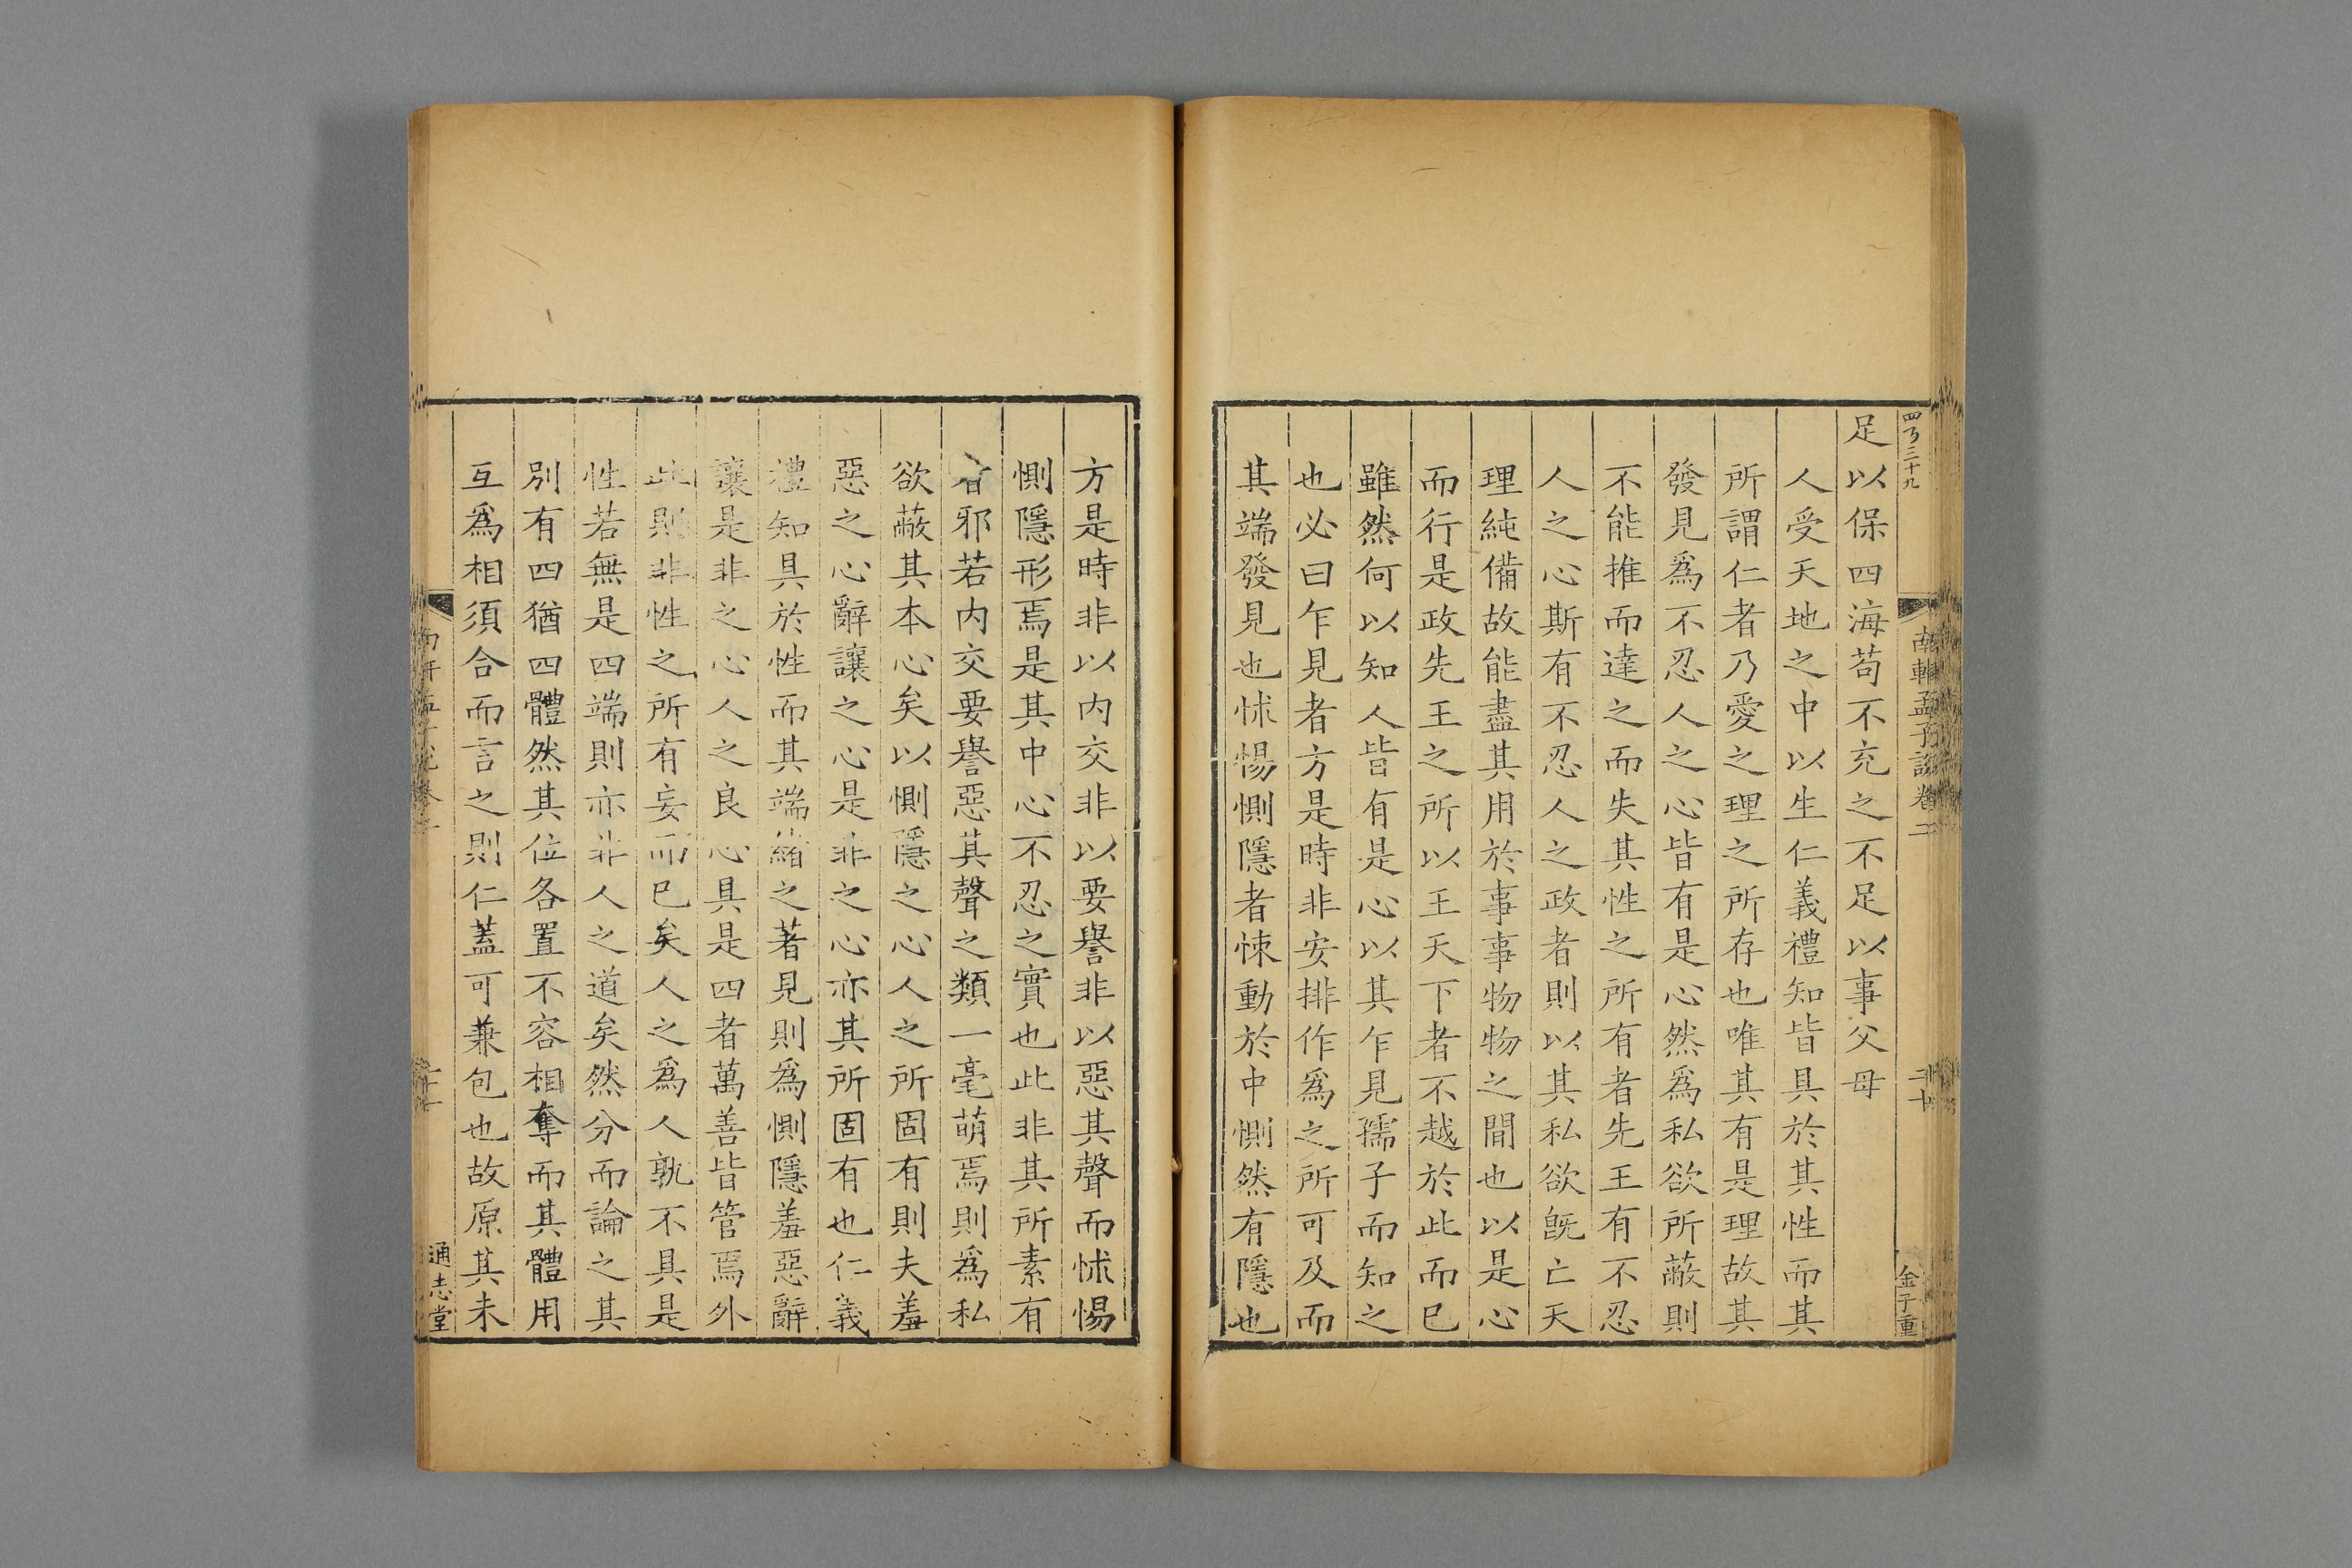 四百三十九
足以保四海苟不充之不足以事父母
人受天地之中以生仁義禮知皆具於其性而其
所謂仁者乃愛之理之所存也唯其有是理故其
發見爲不忍人之心皆有是心然爲私欲所蔽則
不能推而達之而失其性之所有者先王有不忍
人之心斯有不忍人之政者則以其私欲旣亡天
理純備故能盡其用於事事物物之間也以是心
而行是政先王之所以王天下者不越於此而已
雖然何以知人皆有是心以其乍見孺子而知之
也必曰乍見者方是時非安排作爲之所可及而
其端發見也怵惕惻隱者悚動於中惻然有隱也
孟子說卷二
二十
金子重
方是時非以内交非以要譽非以惡其聲而怵惕
惻隱形焉是其中心不忍之實也此非其所素有
者邪若内交要譽惡其聲之類一毫萌焉則爲私
欲蔽其本心矣以惻隱之心人之所固有則夫羞
惡之心辭讓之心是非之心亦其所固有也仁義
禮知具於性而其端緒之著見則爲惻隱羞惡辭
讓是非之心人之良心具是四者萬善皆管焉外
此則非性之所有妄而已矣人之爲人孰不具是
性若無是四端則亦非人之道矣然分而論之其
別有四猶四體然其位各置不容相奪而其體用
互爲相須合而言之則仁蓋可兼包也故原其未
通志堂